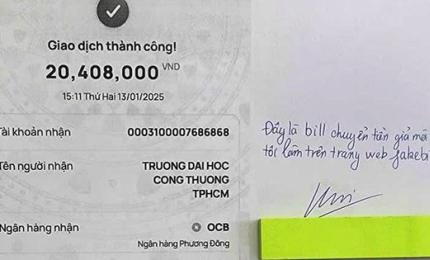 Giao dịch thành công!
20,408,000 VND
15:11 Thứ Hai 13/01/2025
Tài khoản nhận 0003100007686868
Tên người nhận TRUONG DAI HOC
CONG THUONG
TPHCM
Ngân hàng nhận OCB
Ngân hàng Phương Đông
Đây là bill chuyển tiền giả mà
tôi làm trên trang web fakebi